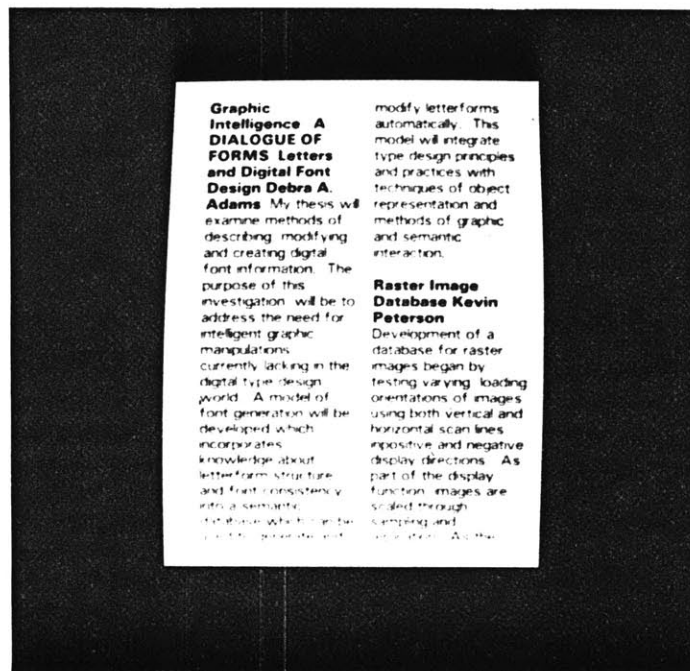 Graphic
Intelligence A
DIALOGUE OF
FORMS Letters
and Digital Font
Design Debra A.
Adams My thesis will
examine methods of
describing modifying
and creating digital
font information. The
purpose of this
investigation will be to
address the need for
intelligent graphic
manipulations
currently lacking in the
digital type design
world A model of
font generation will be
developed which
incorporates
knowledge about
letterform structure
and font consistency
into a semantic
database which can be
generate
modify letterforms
automatically. This
model will integrate
type design principles
and practices with
techniques of object
representation and
methods of graphic
and semantic
interaction.
Raster Image
Database Kevin
Peterson
Development of a
database for raster
images began by
testing varying loading
orientations of images
using both vertical and
horizontal scan lines
inpositive and negative
display directions As
part of the display
function images are
scaled through
sampling and
As the